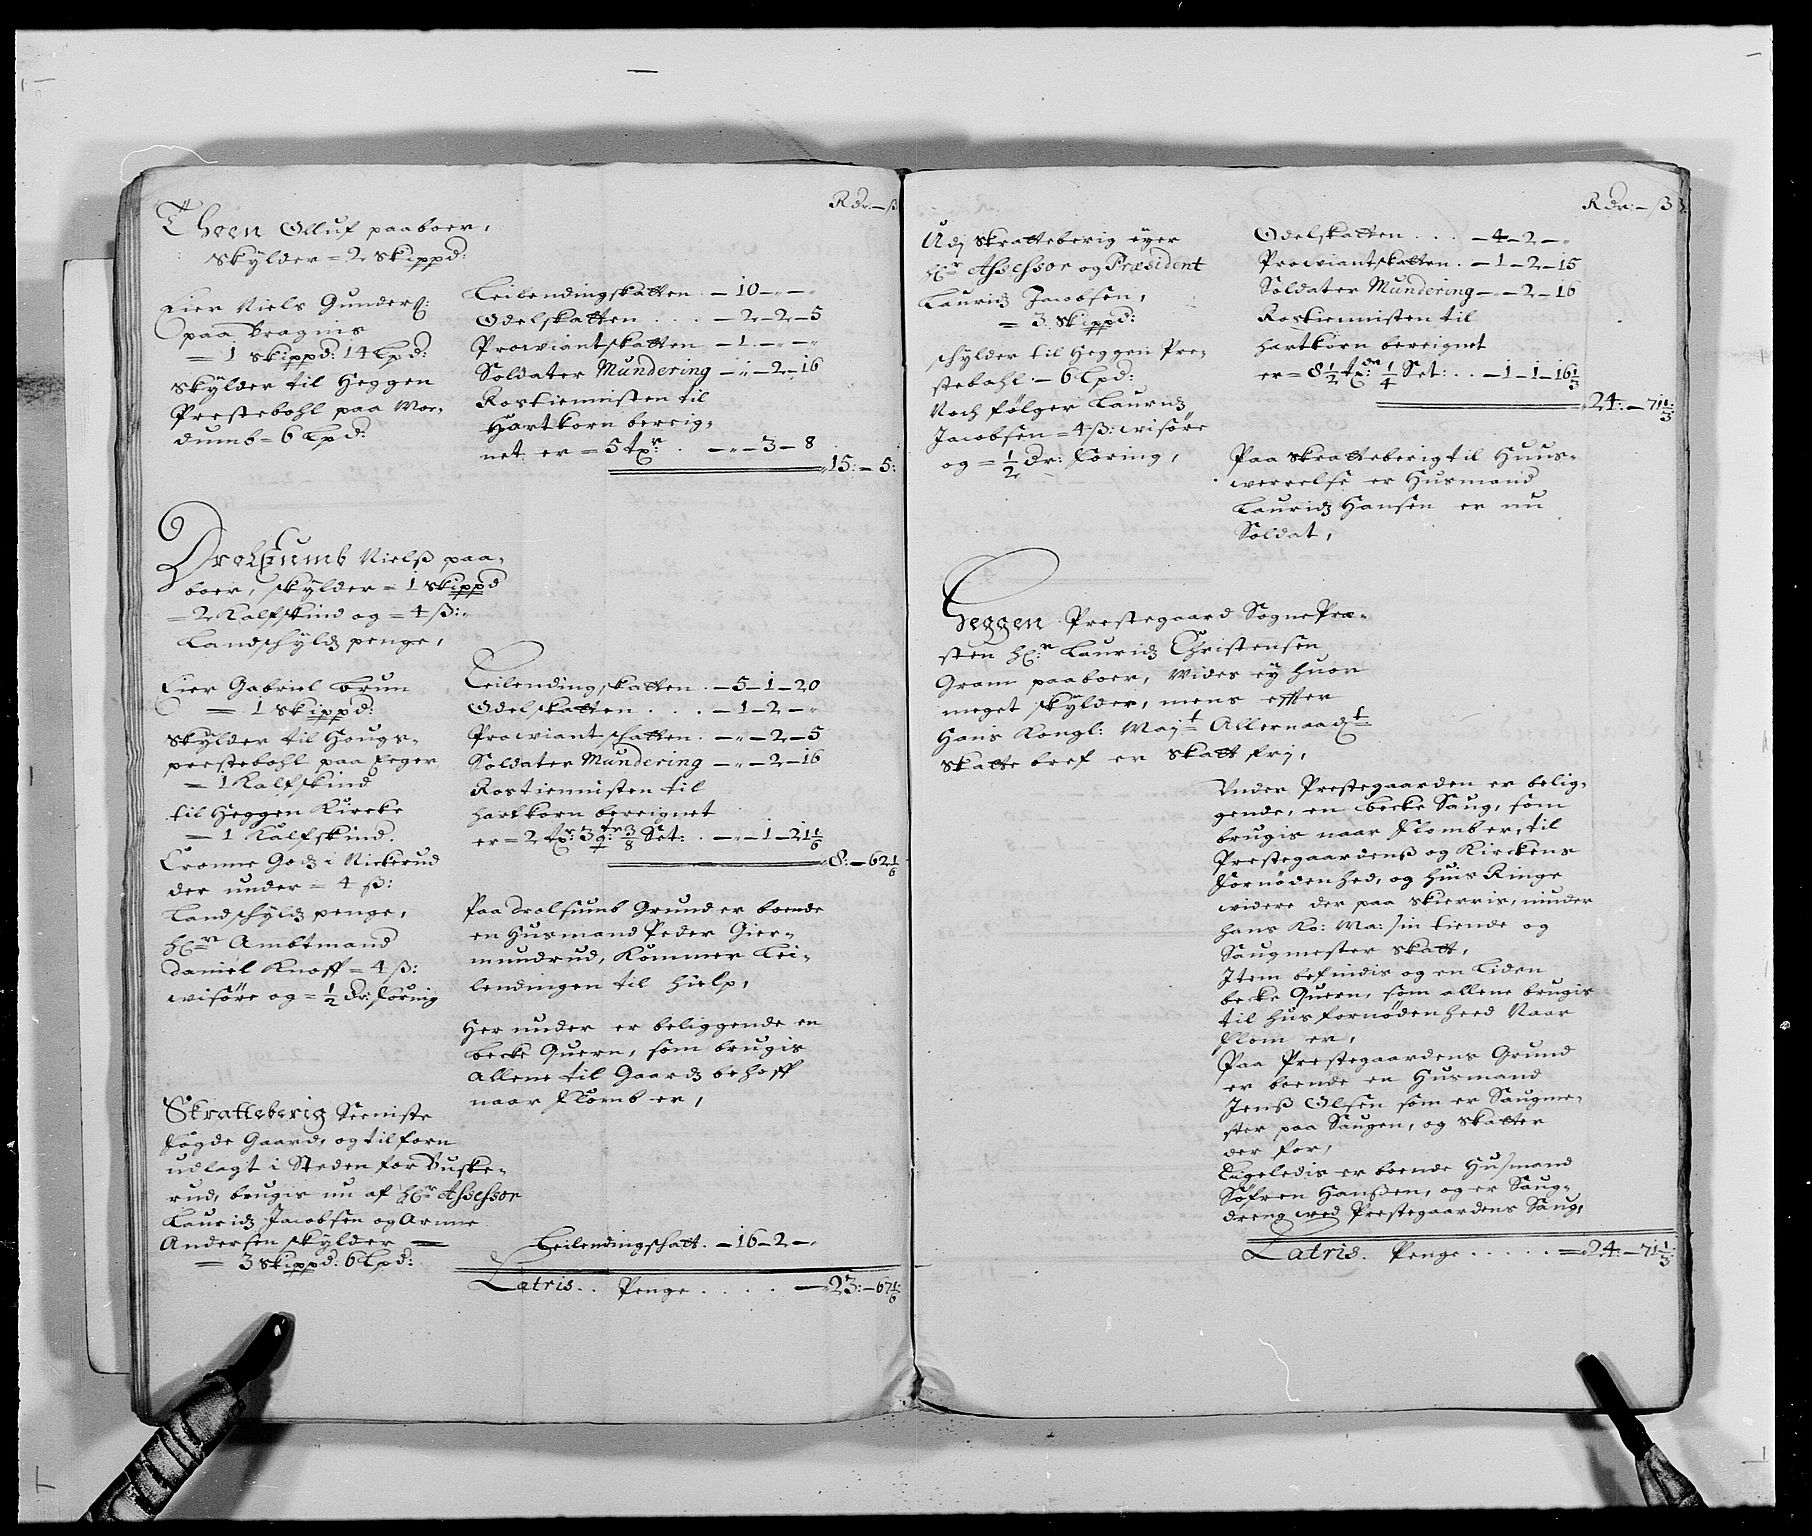 Rdr: – ß
Theen Olluf paaboer,
skylder = 2 skippd:
Eier Niels Gunders:
paa Bragnis
= 1 skippd: 14 Lpd:
skylder til Heggen
Prestebohl paa Mo-
dumb = 6 Lpd:
Leilendingskatten. – 10 – „ – „
Odelskatten . . . – 2 – 2 – 5
Prowiantskatten – 1 – „ – „
Soldater Mundering – „ – 2 – 16
Rostiennisten til
Hartkorn bereig-
net er = 5 tr: . – „ – 3 – 8
15: – 5:
Drolsumb Nielß paa-
boer, skylder = 1 skippd
= 2 Kalfskind og = 4 ß:
Landschyldz penge,
Eier Gabriel Brun
= 1 skippd:
skylder til Hougs-
prestebohl paa Eger
= 1 Kalfskind
til Heggen Kircke
= 1 Kalfskind.
Cronne Godz i Nickerud
der under = 4 ß:
Landschyldz penge,
Hr: Ambtmand
Daniel Knoff = 4 ß:
wisöre og = 1/2 Dr: föring
Leilendingskatten . – 5 – 1 – 20
Odelskatten . . . – 1 – 2 – „
Prowiantschatten . – „ – 2 – 5
Soldater Mundering – „ – 2 – 16
Rostiennisten til
hartkorn bereignet
er = 2 tr: 3 3/8 Set: . – „ – 1 – 21 1/6
8: – 62 1/6
Paa Drolsumb Grund er boende
en Husmand Peder Gier-
mundrud, Kommer Lei-
lendingen til hielp,
Her under er beliggende en
becke Quern, som brugis
allene til Gaardz behoff
naar flomb er,
Skratteberig Seeniste
fogde Gaard, og til forn
udlagt i Steden for Buske-
rud, brugis nu af Hr: Assessor
Lauridz Jacobsen og Arnne
Andersen skylder =
= 3 skippd: 6 Lpd:
Leilendingschatt. – 16 – 2 – „
Latris. . Penge . . . . – 23: – 67 1/6
Rdr: – ß
Udj Skratteberig eyer
Hr: Assessor og Præsident
Lauridz Jacobsen,
= 3 skippd:
schylder til Heggen Pre-
stebohl: – 6 Lpd:
Noch fölger Lauridz
Jacobsen = 4 ß: wisöre
og = 1/2 Dr: föring,
Odelskatten . . . – 4 – 2 – „
Prowiantskatten . – 1 – 2 – 15
Soldater Mundering – „ – 2 – 16
Rostiennisten til
hartkorn bereignet
er = 8 1/2 tr: 1/4 Set: . . – 1 – 1 – 16 1/3
24: – 71 1/3
Paa Skratteberig til Huus-
werrelse er Husmand
Lauridz Hansen er nu
Soldat,
Heggen Prestegaard SognePre-
sten Hr: Lauridz Christensen
Gram paaboer, Wides ey huor
meget skylder, mens effter
Hans Kongl: Mayt Allernaadt
skatte bref er skatt frj,
Under Prestegaarden er belig-
gende, en becke Saug, som
brugis naar flomb er, til
Prestegaardenß og Kirckens
fornödenhed, og huis Ringe
widere der paa skierris, niuder
hans Ko: Ma: sin tiende og
Saugmester skatt,
Item befindis og en Liden
becke Quern, som allene brugis
til huus fornödenheed Naar
flom er,
Paa Prestegaardens Grund
er boende en Husmand
Jenß Olsen som er Saugme-
ster paa Saugen, og skatter
der for,
Ligeledis er boende Husmand
Söfren Hanßen, og er Saug-
dreng wed Prestegaardens Saug,
Latris. Penge . . . . . = 24: – 71 1/3